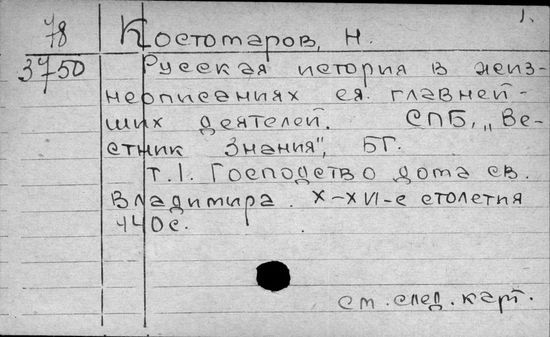 1.
78 Костомаров, Н.
3750 Русская история в жиз-
неописаниях ея главней-
ших деятелей. СПБ, „Ве-
стник Знания", БГ.
т.1. Господство дома св.
Владимира. X-XVI-е столетия
440с.
см. след. карт.